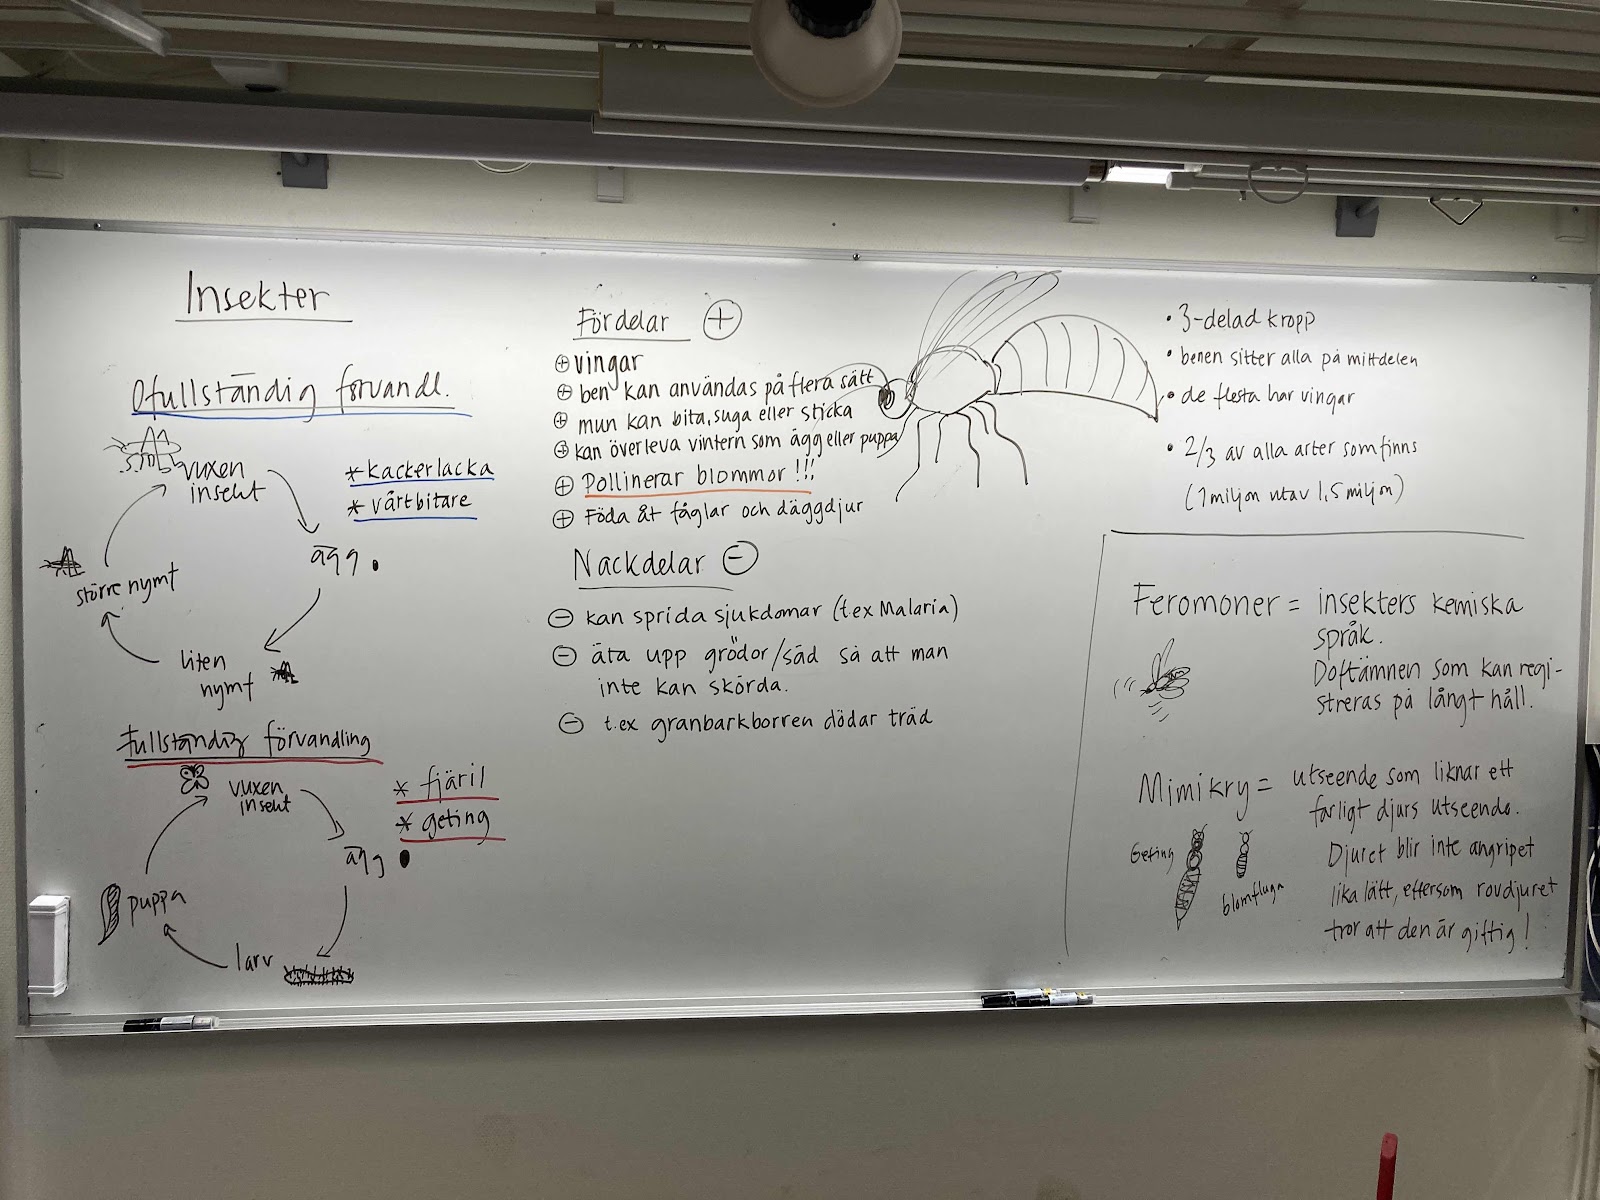 Insekter
Ofullständig förvandl.
vuxen
insekt
* kackerlacka
* vårtbitare
ägg
liten
nymf
större nymf
Fullständig förvandling
vuxen
insekt
* fjäril
* geting
ägg
larv
puppa
Fördelar +
+ vingar
+ ben kan användas på flera sätt
+ mun kan bita, suga eller sticka
+ kan överleva vintern som ägg eller puppa
+ Pollinerar blommor!!!
+ Föda åt fåglar och däggdjur
Nackdelar -
- kan sprida sjukdomar (t.ex Malaria)
- äta upp grödor/säd så att man
inte kan skörda.
- t.ex granbarkborren dödar träd
• 3-delad kropp
• benen sitter alla på mittdelen
• de flesta har vingar
• 2/3 av alla arter som finns
(1 miljon utav 1,5 miljon)
Feromoner = insekters kemiska
språk.
Doftämnen som kan regi-
streras på långt håll.
Mimikry = utseende som liknar ett
farligt djurs utseende.
Geting
blomfluga
Djuret blir inte angripet
lika lätt, eftersom rovdjuret
tror att den är giftig!